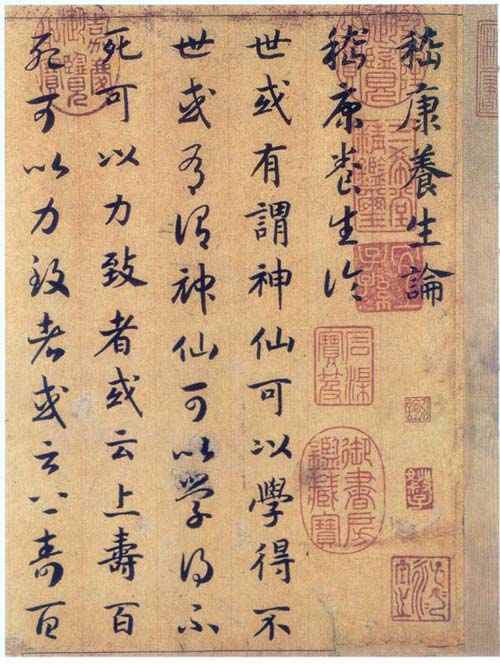 嵇康養生論
嵇康養生論
世或有謂神仙可以學得不
世或有謂神仙可以學得不
死可以力致者或云上壽百
死可以力致者或云上壽百
三希堂精鑑璽
宜子孫
石渠寶笈
御書房鑑藏寶
嘉慶御覽之寶